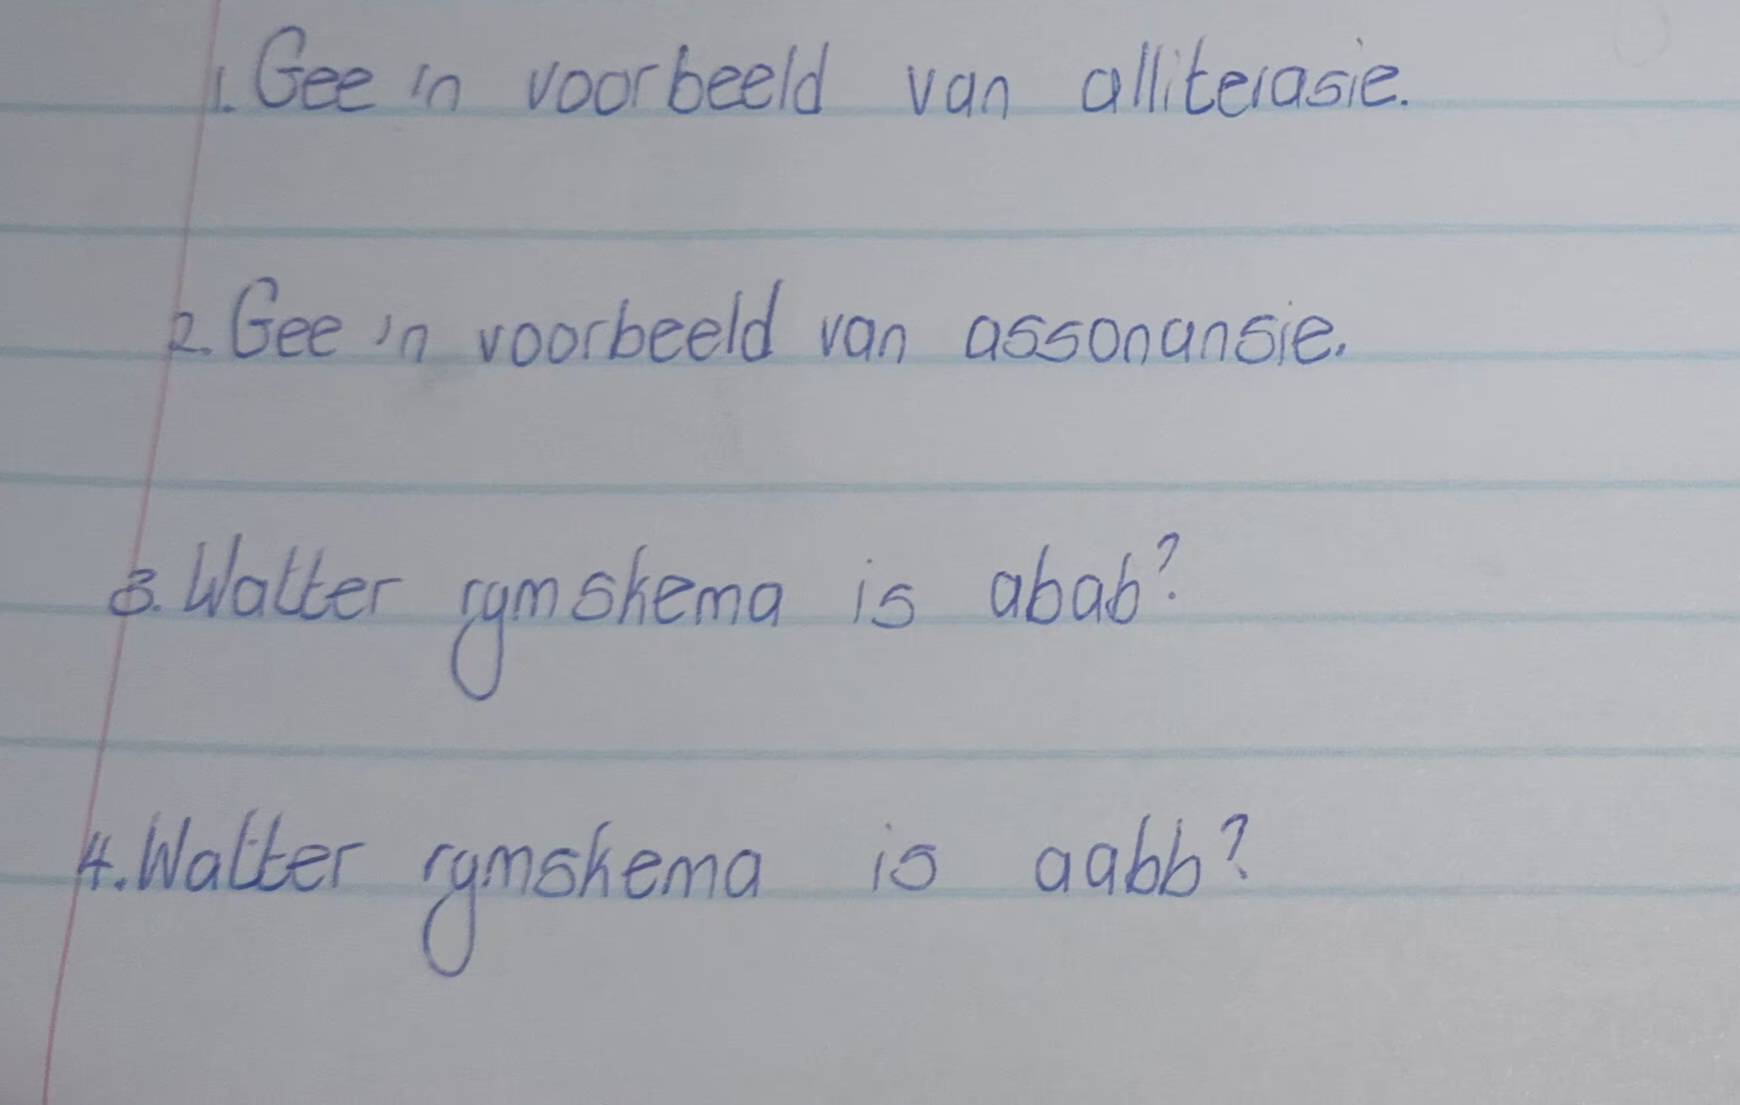 1. Gee 'n voorbeeld van alliterasie.
2. Gee 'n voorbeeld van assonansie.
3. Watter rymskema is abab?
4. Watter rymskema is aabb?